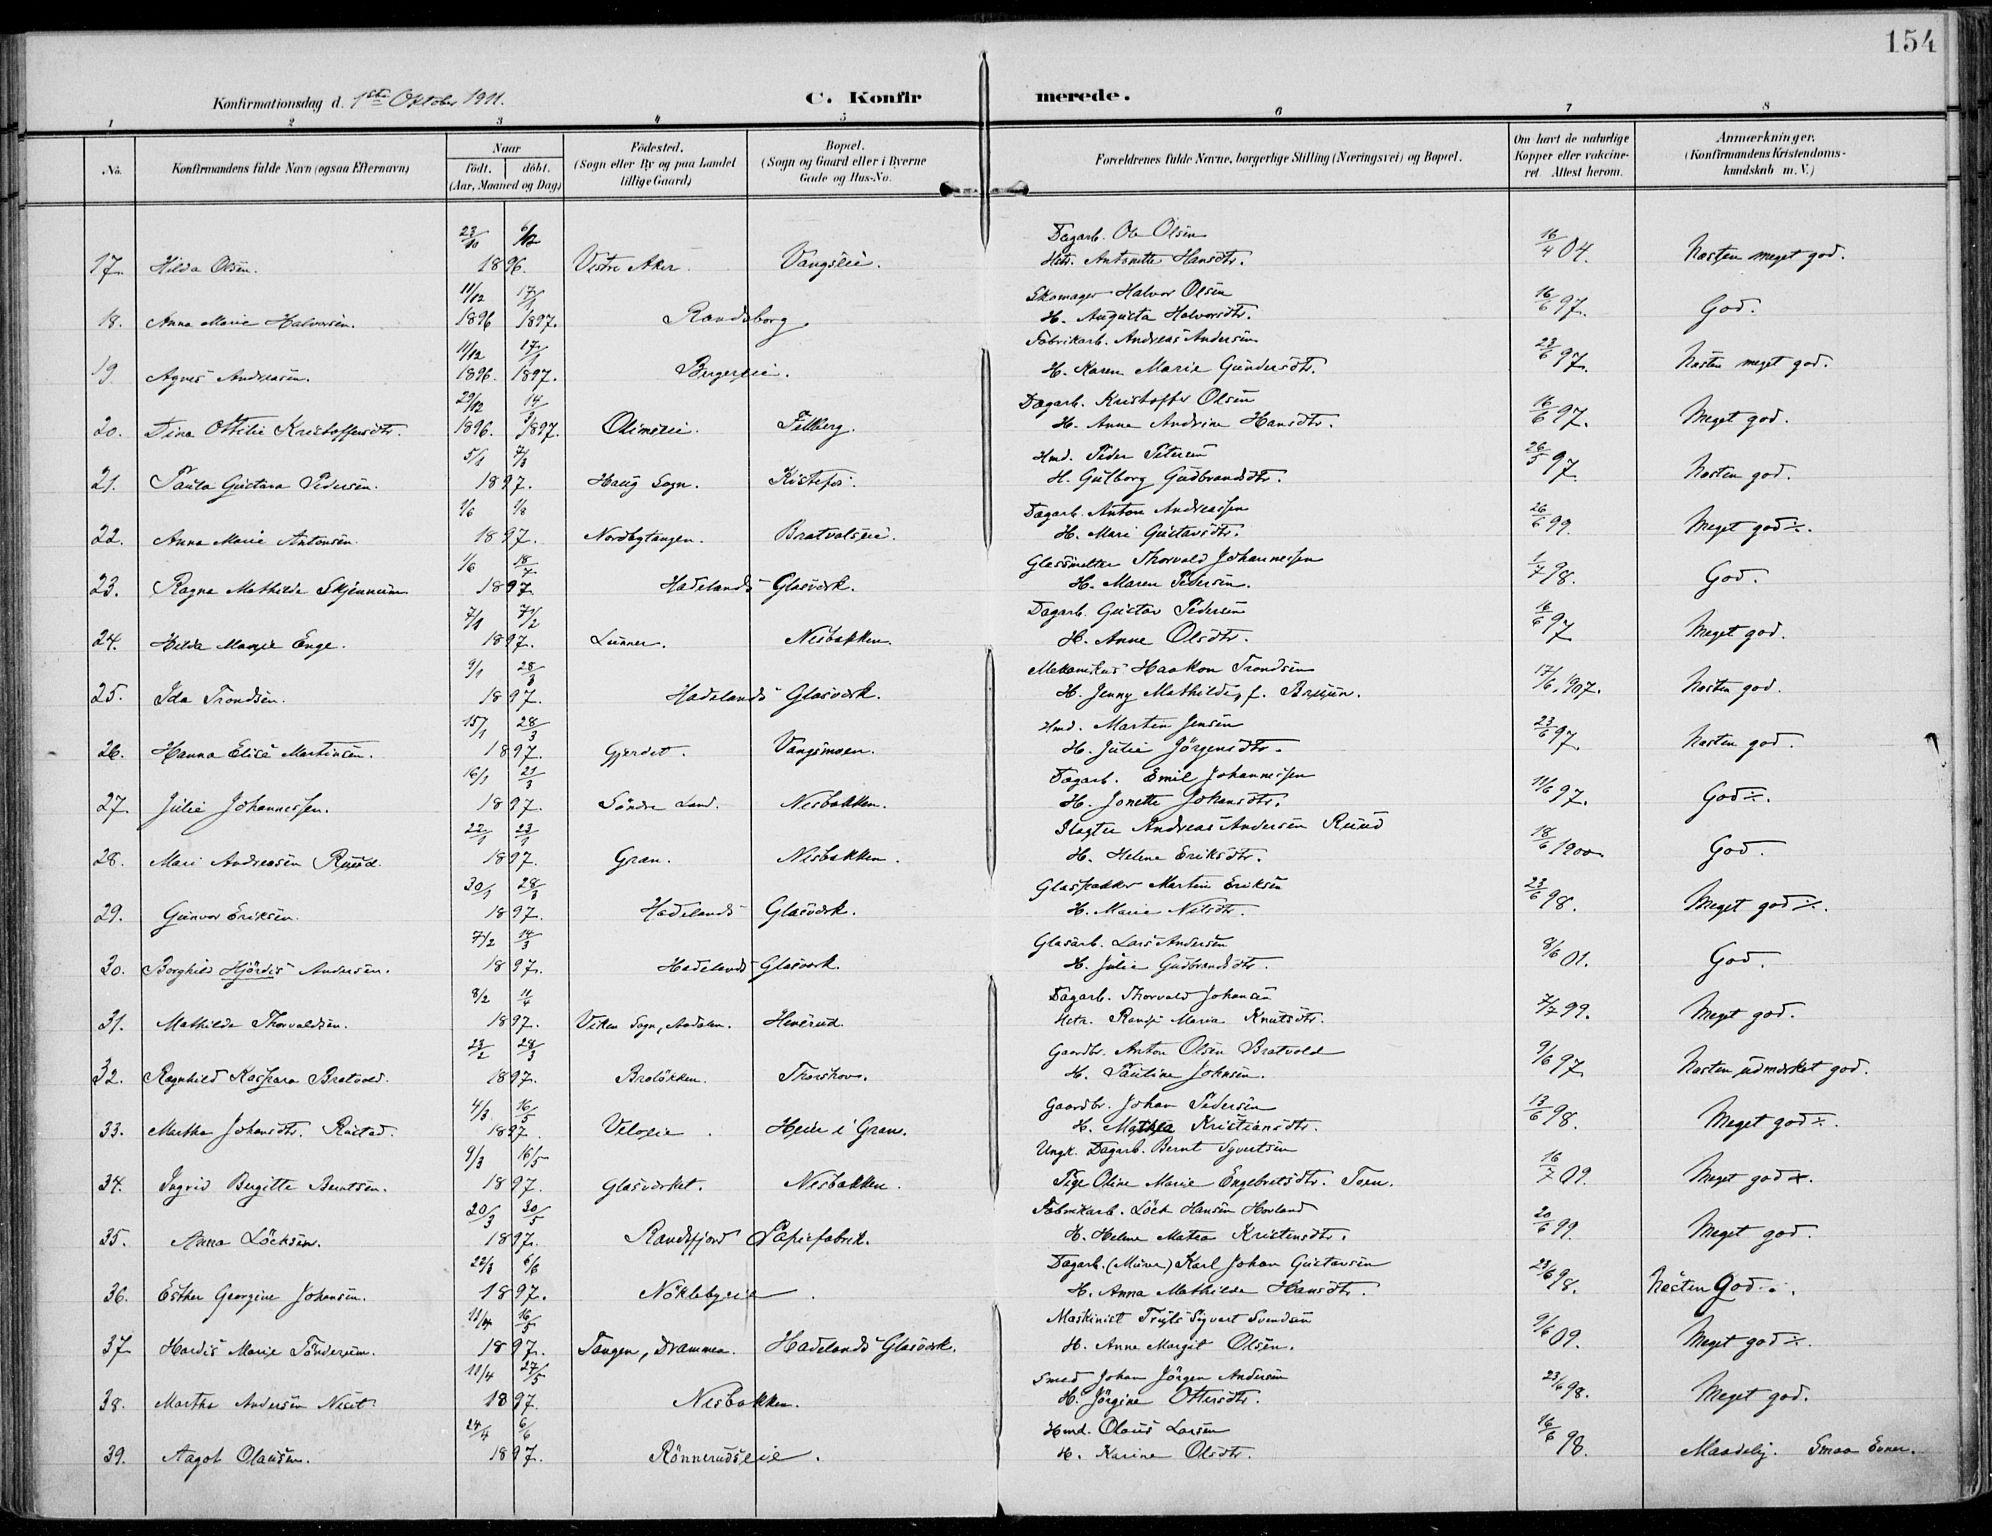 154
Konfirmationsdag d. 1ste Oktober 1911.
C. Konfirmerede.
1 2 3 4 5 6 7 8
No. | Konfirmandens fulde Navn (ogsaa Efternavn) | Naar födt. döbt. (Aar, Maaned og Dag) | Födested. (Sogn eller By og paa Landet tillige Gaard) | Bopæl. (Sogn og Gaard eller i Byerne Gade og Hus-No. | Forældrenes fulde Navne, borgerlige Stilling (Næringsvei) og Bopæl. | Om havt de naturlige Kopper eller vakcineret. Attest herom. | Anmærkninger. (Konfirmandens Kristendomskundskab m. V.)
23/10 6/12 Dagarb. Ole Olsen
17. Hilda Olsen. 1896. Vestre Aker. Vangseie. Hstr. Antonette Hansdtr. 16/4 04. Næsten meget god.
11/12 17/1 Skomager Halvor Olsen
18. Anna Marie Halvorsen. 1896 1897. Randsborg. H. Augusta Halvorsdtr. 16/6 97. God.
11/12 17/1 Fabrikarb. Andreas Andersen
19. Agnes Andreasen. 1896. 1897. Bergereie. H. Karen Marie Gundersdtr. 23/6 97. Næsten meget god.
29/12 14/3 Dagarb. Kristoffer Olsen
20. Dina Ottilie Kristoffersdtr. 1896. 1897. Olimseie. Fellberg. H. Anne Andrine Hansdtr. 16/6 97. Meget god.
5/1 7/3 Hmd. Peder Petersen
21. Paula Gustava Pedersen. 1897. Haug Sogn. Kistefos. H. Gulborg Gudbrandsdtr. 26/5 97. Næsten god.
1/6 1/8 Dagarb. Anton Andreassen
22. Anna Marie Antonsen. 1897. Nordbytangen. Bratvalseie. H. Mari Gustavsdtr. 26/6 99. Meget god ÷.
1/6 18/7 Glassmelter Thorvald Johannessen
23. Ragna Mathilde Skjennum 1897. Hadelands Glasværk. H. Maren Pedersen. 1/7 98. God.
7/1 7/2 Dagarb. Gustav Pedersen
24. Hilda Marie Enge. 1897. Lunner. Nesbakken. H. Anne Olsdtr. 16/6 97 Meget god.
9/1 28/3 Mekanikus Haakon Trondsen
25. Ida Trondsen. 1897. Hadelands Glasværk. H. Jenny Mathilde, f. 17/6, 907. Næsten god.
15/1 28/3 Hmd. Martin Jensen
26. Hanna Elise Martinsen. 1897. Gjerdet. Vangsmoen. H. Julie Jörgensdtr. 23/6 97. Næsten god.
16/1 21/3 Dagarb. Emil Johannessen
27. Julie Johannessen. 1897. Söndre Land. Nesbakken. H. Jonette Johansdtr. 11/6 97. God ÷.
22/1 23/1 Slagter Andreas Andersen Ruud
28. Mari Andreasen Ruud. 1897. Gran. Nesbakken. H. Helene Eriksdtr. 18/6 1900 God.
30/1 28/3 Glaspakker Martin Eriksen
29. Gunvor Eriksen. 1897. Hadelands Glasværk. H. Marie Nilsdtr. 23/6 98. Meget god ÷.
7/2 14/3 Glasarb. Lars Andersen
30. Borghild Hjördis Andersen. 1897. Hadelands Glasværk. H. Julie Gudbrandsdtr. 8/6 01. God.
8/2 11/4 Dagarb. Thorvald Johansen
31. Mathilde Thorvaldsen. 1897. Viken Sogn, Aadalen. Henerud. Hstr. Randi Maria Knutsdtr. 7/7 99. Meget god.
23/2 28/3 Gaardbr. Anton Olsen Bratvold
32. Ragnhild Kaspara Bratvold. 1897. Braløkken. Thorshov. H. Pauline Johnsen. 9/6 97 Næsten udmærket god.
4/3 16/5 Gaardbr. Johan Pedersen
33. Martha Johansdtr. Røstad. 1897. Velo eie. Heie i Gran. H. Mathea Kristiansdtr. 13/6 98. Meget god ÷.
9/3 16/5 Ungk. Dagarb. Bernt Syvertsen
34. Ingrid Birgitte Berntsen. 1897. Glasværket. Nesbakken. Pige Oline Marie Engebretsdtr. Toen. 16/7 09. Meget god ÷.
20/3 30/5 Fabrikarb. Löck Hansen Hovland
35. Anna Löcksen. 1897. Randsfjord Papirfabrik. H. Helene Matea Kristensdtr. 20/6 99. Meget god.
22/3 6/6 Dagarb. (Murer) Karl Johan Gustavsen
36. Esther Georgine Johansen. 1897. Nöklebyeie. H. Anna Mathilde Hansdtr. 23/6 98. Næsten God ÷.
11/4 16/5 Maskinist Sigvart Svendsen
37 Hardis Marie Tönderum. 1897. Tangen, Drammen. Hadelands Glasværk. H. Anne Margit Olsen. 9/6 09. Meget god ÷.
11/4 27/5 Smed Johan Jörgen Andersen
38. Martha Andersen Neset 1897. Nesbakken. H. Jörgine Ottersdtr. 23/6 98. Meget god.
24/4 6/6 Hmd. Olaus Larsen
39. Aagot Olausen. 1897. Rönnerudseie. H. Karine Olsdtr. 16/6 98. Maadelig. Smaa Evner.